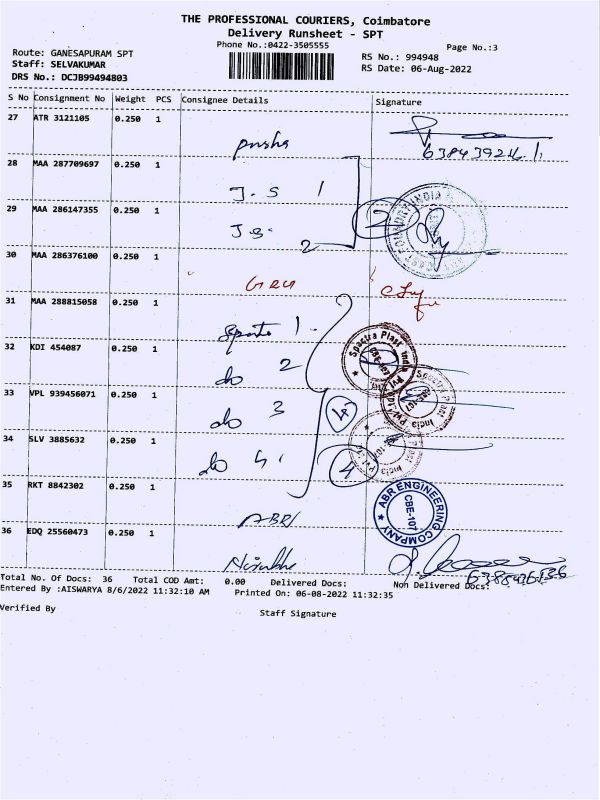 THE PROFESSIONAL COURIERS, Coimbatore
Delivery Runsheet - SPT
Phone No.:0422-3505555
Page No.:3
Route: GANESAPURAM SPT
Staff: SELVAKUMAR
DRS No.: DCJB99494803
RS No.: 994948
RS Date: 06-Aug-2022
S No Consignment No Weight PCS Consignee Details Signature
27 ATR 3121105 0.250 1
28 MAA 287709697 0.250 1
J.S 1
29 MAA 286147355 0.250 1
J.S. 2
2
30 MAA 286376100 0.250 1
31 MAA 288815058 0.250 1
1
32 KDI 454087 0.250 1
do 2
33 VPL 939456071 0.250 1
do 3
34 SLV 3885632 0.250 1
do 4
4
Spectra Plast India Pvt Ltd
CBE-107
35 RKT 8842302 0.250 1
ABR
ABR ENGINEERING COMPANY
CBE-107
36 EDQ 25560473 0.250 1
Total No. Of Docs: 36 Total COD Amt: 0.00 Delivered Docs: Non Delivered Docs:
Entered By :AISWARYA 8/6/2022 11:32:10 AM Printed On: 06-08-2022 11:32:35
Verified By
Staff Signature